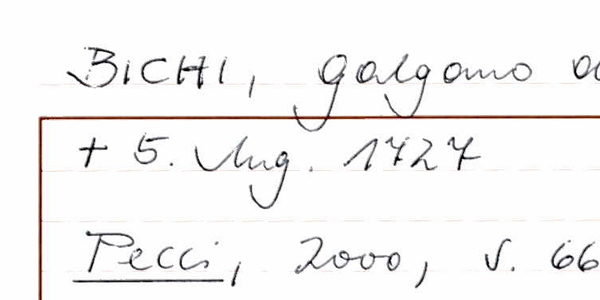 BICHI, Galgano
+ 5. Aug. 1727
Pecci, 2000, S. 66